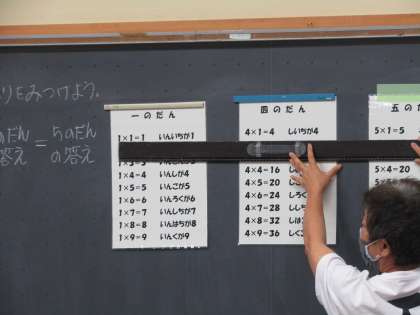 りをみつけよう。
のだん = 5のだん
答え の答え
一のだん
1×1=1 いんいちが1
1×4=4 いんしが4
1×5=5 いんごが5
1×6=6 いんろくが6
1×7=7 いんしちが7
1×8=8 いんはちが8
1×9=9 いんくが9
四のだん
4×1=4 しいちが4
4×4=16
4×5=20
4×6=24 しろく
4×7=28 ししち
4×8=32 しは
4×9=36 しく
五のだ
5×1=5
5×4=20